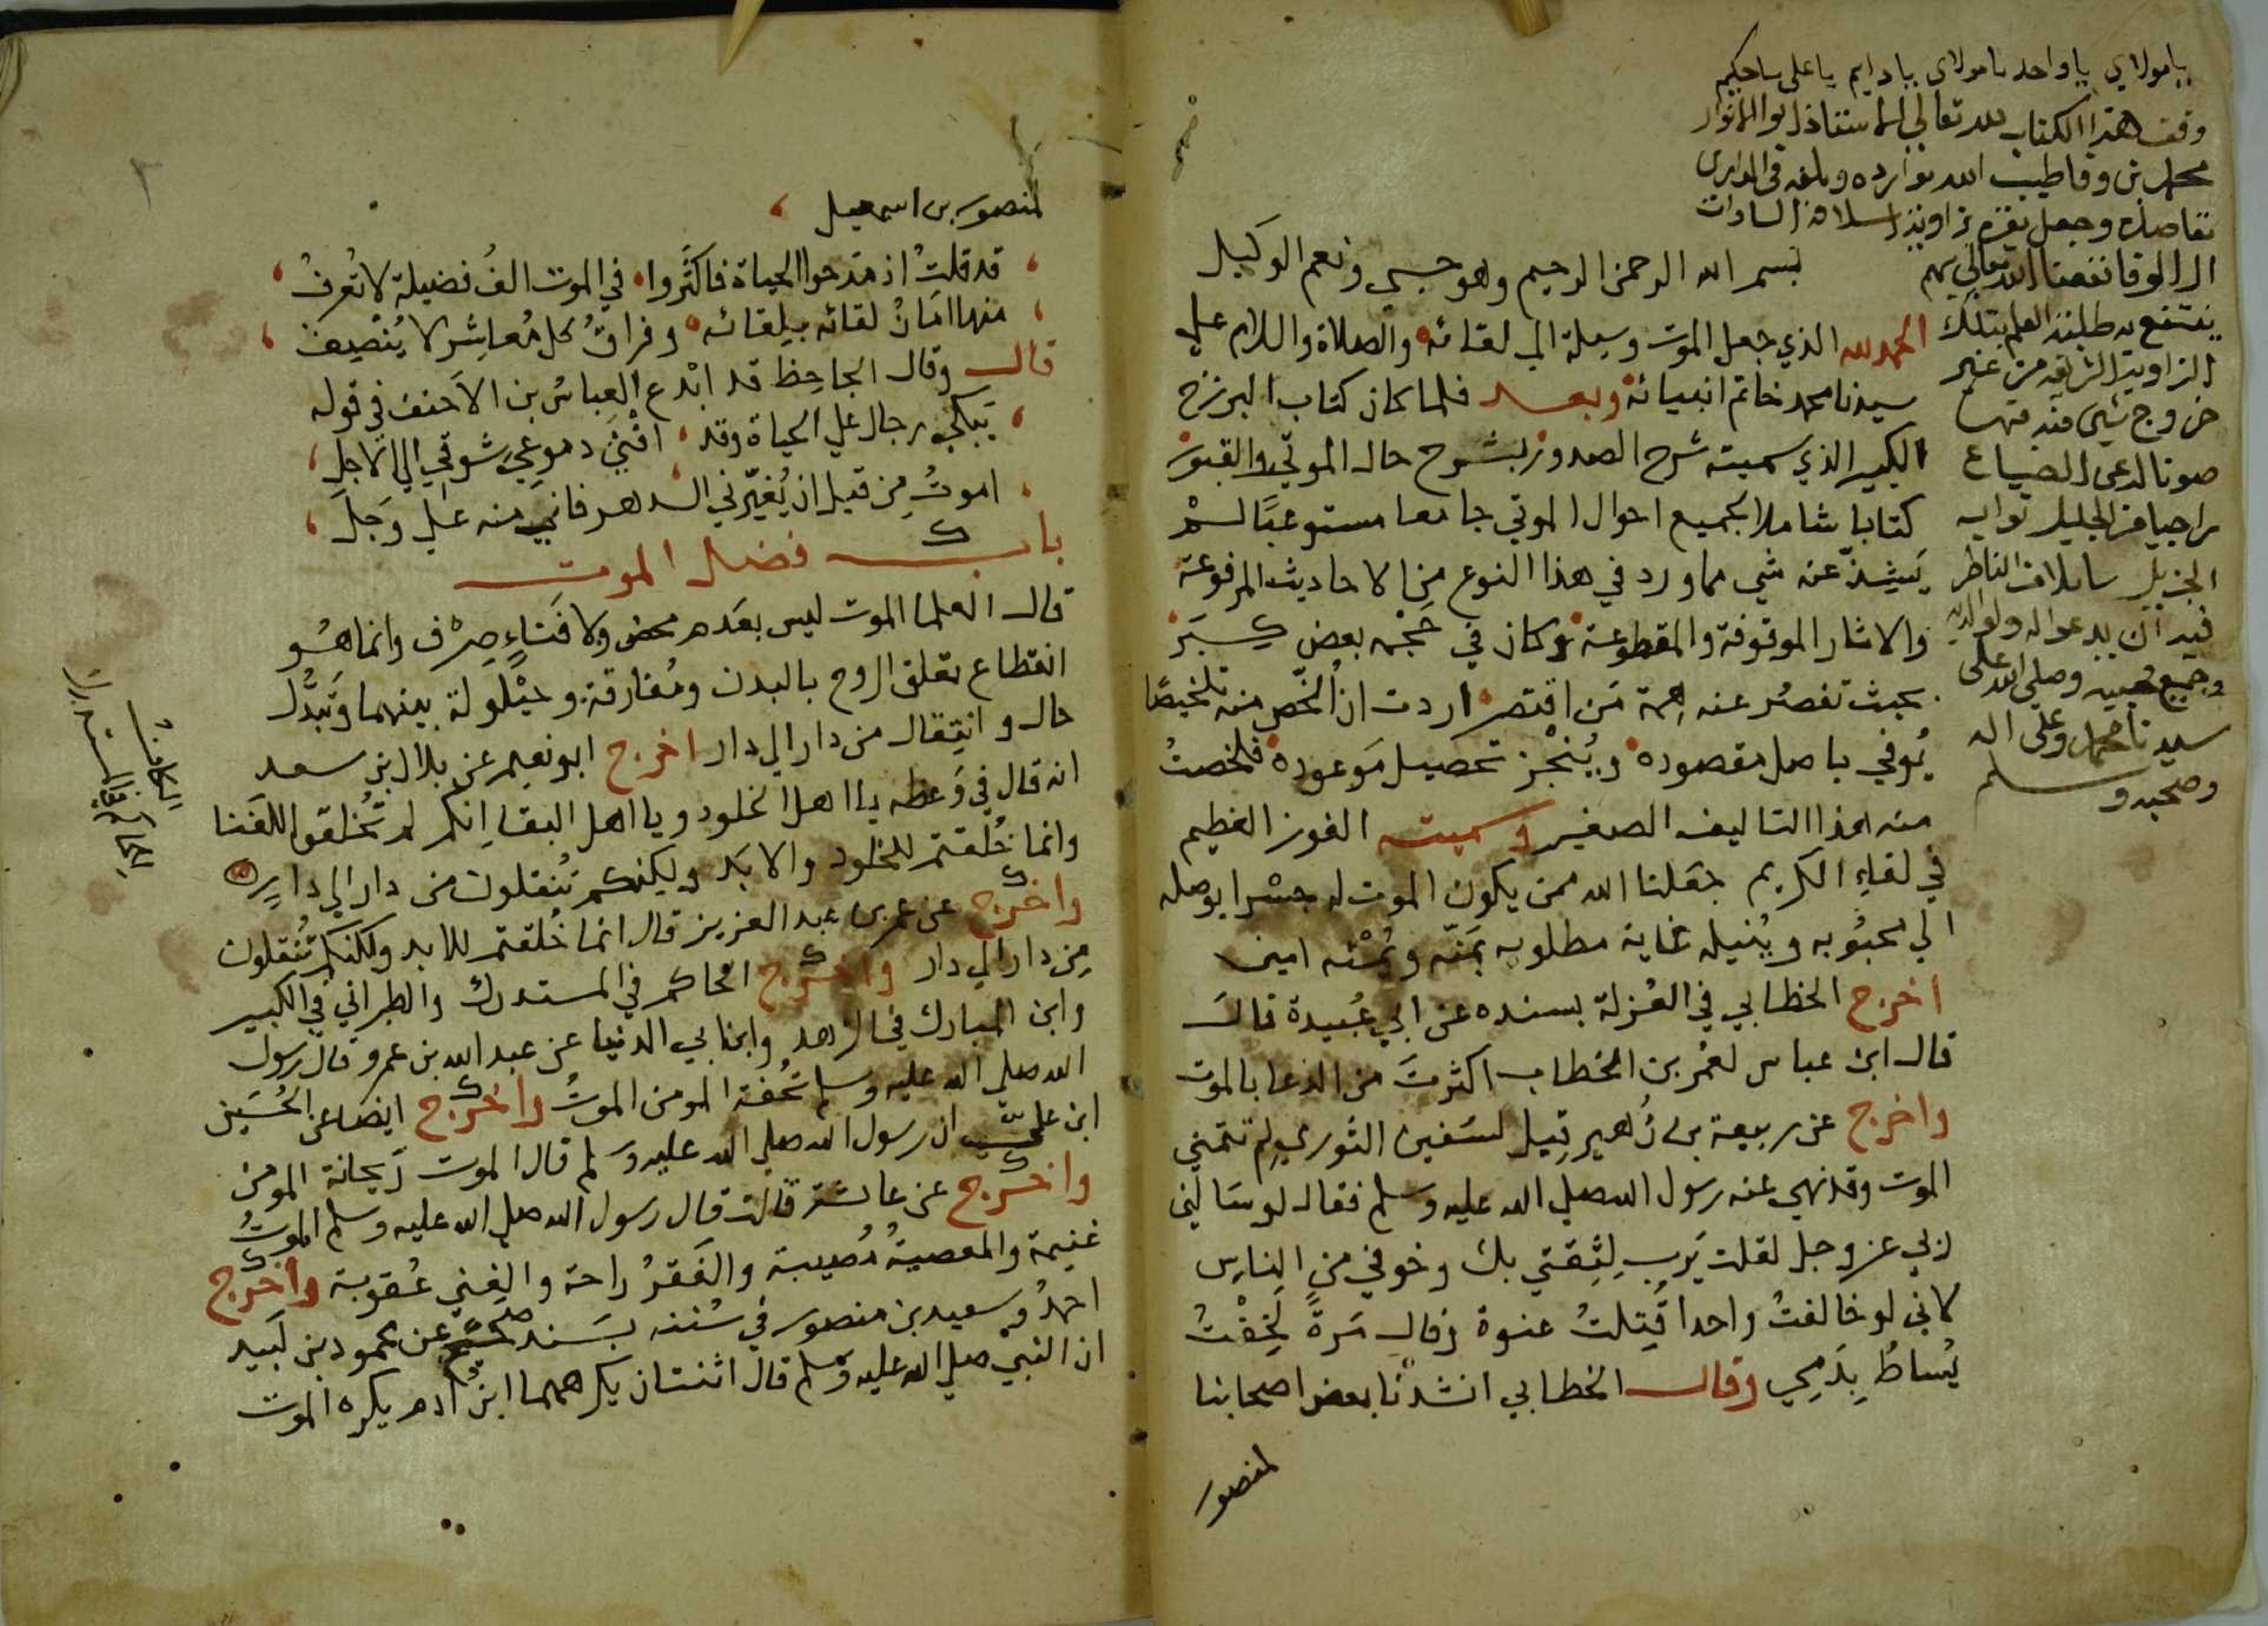 يا مولاي يا واحد يا مولاى يا دايم يا على يا حكيم
وقف هذا الكتاب لله تعالى الاستاذ ابو الانوار
محمد بن وفا طيب الله
وجعل مقره بزاوية اسلافه السادات
ال الوفا نفعنا الله تعالى بهم
ينتفع به طلبة العلم بتلك
الزاوية الشريفة من غير
خروج شيى منه منها
صونا له عن الضياع
راجيا من الجليل ثوابه
الجزيل سايلا من الناظر
فيه ان يدعو اله ولوالديه
وجميع محبيه وصلى الله على
سيدنا محمد وعلى اله
وصحبه وسلم
بسم الله الرحمن الرحيم وهو حسبي ونعم الوكيل
الحمد لله الذي جعل الموت وسيلة الي لقائه والصلاة والسلام علي
سيدنا محمد خاتم انبيائه وبعد فلما كان كتاب البرزخ
الكبير الذي سميته شرح الصدور بشرح حال الموتي والقبور
كتابا شاملا لجميع احوال الموتي جامعا مستوعبًا لم
يَشِذّ عنه شي مما ورد في هذا النوع من الاحاديث المرفوعة
والاثار الموقوفة والمقطوعة وكان في حَجْمه بعض كِبَر
بحيث تقصُر عنه همة مَن اقتصر اردت ان اُلخّص منه تلخيصًا
يُوفي باصل مقصوده ويُنْجز تحصيل مَوعوده فلخصتُ
منه هذا التاليف الصغير وسميته الفوز العظيم
في لقاءِ الكريم جَعَلنا الله ممن يكون الموت له جسْرا يوصله
الي محبُوبه ويُنيله غاية مطلوبه بمَنّه ويُمْنه امين
اخرج الخطابي في العُزلة بسنده عن ابي عُبيدة قال
قال ابن عباس لعُمر بن الخطاب اكثرتَ من الدعا بالموت
واخرج عن ربيعة بن زُهير قِيل لسُفين الثوري لِم تتمني
الموت وقد نهي عنه رسول الله صلي الله عليه وسلم فقال لو سَالني
ربي عز وجل لقلت يَرب لِثِقتي بك وخوفي من الناس
كاني لو خالفتُ واحدا قُتِلتُ عنوة وقال مَرةً لَخِفْتُ
يُساطُ بِدَمِي وقال الخطابي انشدنا بعض اصحابنا
لمنصور
٢
لمنصور بن اسمعيل
قد قلتُ اذ مَدحوا الحياة فاكثَروا في الموت الفُ فضيلة لا تُعرفُ
منها امَانُ لقائه بِلِقائه وفراقُ كل مُعاشِر لا يُنْصِفُ
قال وقال الجاحِظ قد ابْدع العباسُ بن الاَحنف في قوله
يَبكي رجال علي الحياة وقد افْنيَ دموعيَ شوقي الي الاَجلِ
اموتُ مِن قبل ان يُغيّرني الدهر فاني منه عَلي وَجَلَ
باب فضل الموت
قال العلما الموت ليس بعَدم محض ولا فَناءٍ صِرْف وانما هُو
انقطاع تعلق الروح بالبدن ومُفارقة وحَيْلولة بينهما وتَبَدُّل
حال وانتِقال من دار الي دار اخرج ابو نعيم عن بلال بن سعد
انه قال في وَعظه يا اهل الخلود ويا اهل البقا اِنكم لم تُخلقوا للفَنا
وانما خُلقتم للخلود والابَد ولكِنكم تُنقلون من دار الي دارٍ
واخرج عن عمر بن عبد العزيز قال انما خُلقتم للابد ولكنكم تُنقلون
مِن دار الي دار واخرج الحاكم في المستدرك والطبراني في الكبير
وابن المبارك في الزهد وابن ابي الدنيا عن عبد الله بن عمرو قال رسول
الله صلي الله عليه وسلم تُحْفة المومن الموتُ واخرج ايضا عن الحُسَين
ابن عليّ ان رسول الله صلي الله عليه وسلم قال الموت رَيحانة المومن
واخرج عن عائشة قالت قال رسول الله صلي الله عليه وسلم الموتُ
غنيمة والمعصيةُ مُصيبة والفَقرُ راحة والغِني عُقوبة واخرج
احمدُ وسعيد بن منصور في سُننه بسَند صحيح عن محمود بن لَبيد
ان النبيْ صلي الله عليه وسلم قال اثنتان يكرههما ابنُ ادم يكره الموت